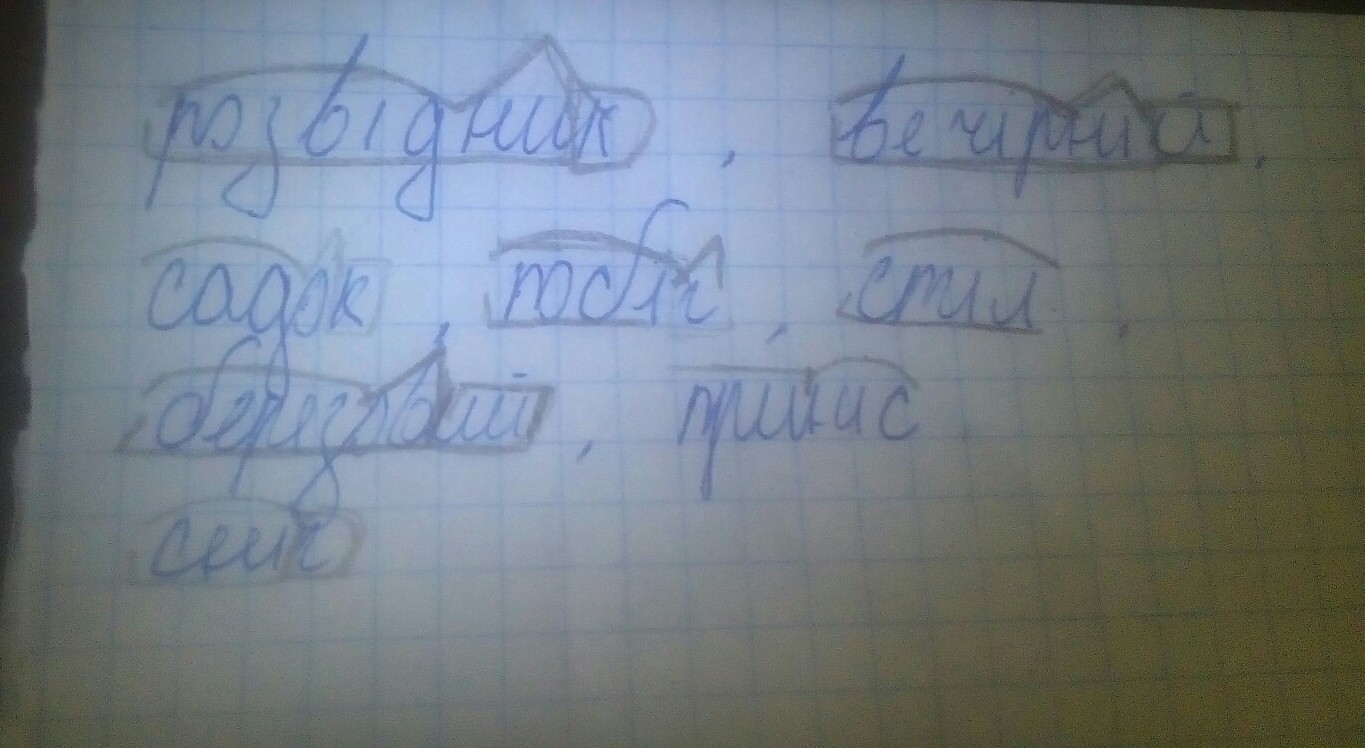 розвідник, вечірний,
садок, побіч, стіл,
березовий, приніс
сніг